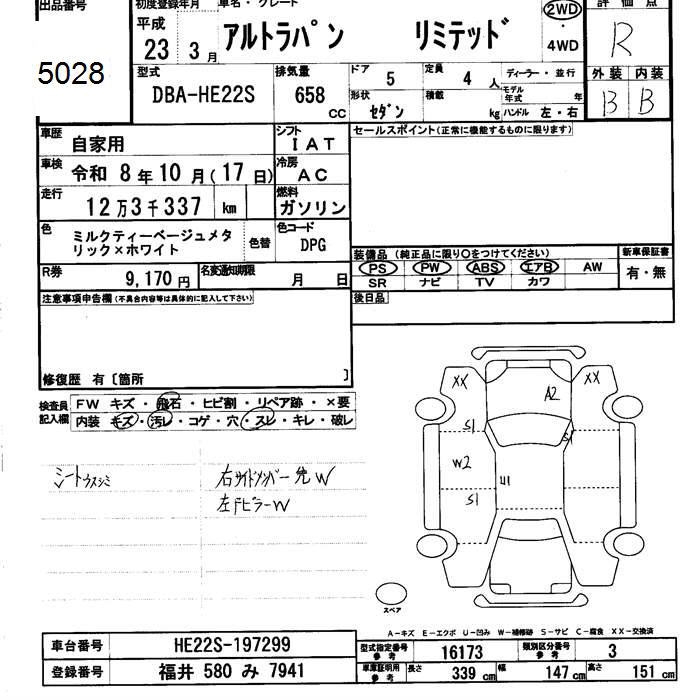 出品番号
初度登録年月
車名・グレード
2WD
・
4WD
評価点
R
平成
23 3月
アルトラパン リミテッド
5028
型式
DBA-HE22S
排気量
658
CC
ドア
5
定員
4
人
ディーラー・並行
形状
セダン
積載
kg
モデル
年式
年
ハンドル 左・右
外装 内装
B B
車歴
自家用
シフト
IAT
セールスポイント(正常に機能するものに限ります)
車検
令和 8年10月(17日)
冷房
AC
走行
12万3千337 km
燃料
ガソリン
色
ミルクティーベージュメタ
リック×ホワイト
色替
色コード
DPG
装備品 (純正品に限り○をつけてください)
新車保証書
PS PW ABS エアB AW
有・無
SR ナビ TV カワ
R券
9,170円
名変通知期限
月 日
後日品
注意事項申告欄(不具合内容等は具体的に記入して下さい)
修復歴 有〔箇所 〕
検査員
記入欄
FW キズ・飛石・ヒビ割・リペア跡・×要
内装 キズ・汚レ・コゲ・穴・スレ・キレ・破レ
シートウスシミ
右サイドメンバー先W
左FピラーW
XX
XX
A2
S1
S1
W2
U1
S1
スペア
A-キズ E-エクボ U-凹み W-補修跡 S-サビ C-腐食 XX-交換済
車台番号
HE22S-197299
型式指定番号
参考
16173
類別区分番号
参考
3
登録番号
福井 580 み 7941
車庫証明用
参考
長さ
339 cm
幅
147 cm
高さ
151 cm